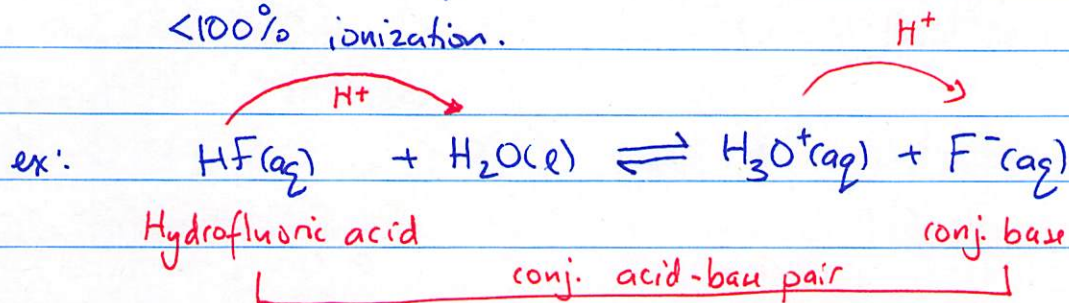 <100% ionization.
H⁺
H+
ex: HF(aq) + H₂O(l) ⇌ H₃O⁺(aq) + F⁻(aq)
Hydrofluoric acid conj. base
conj. acid-base pair